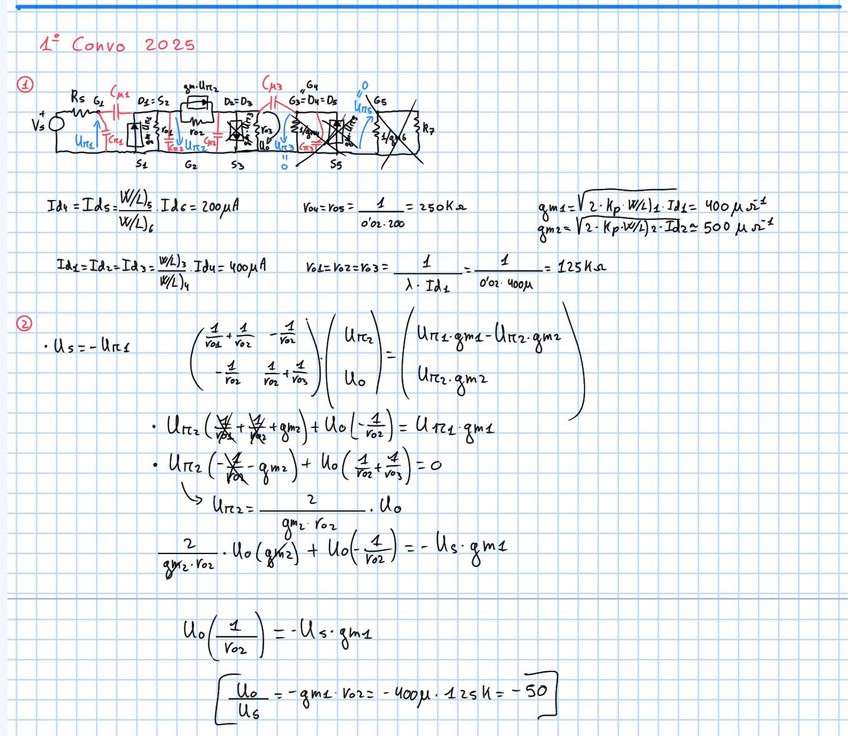 1º Convo 2025
①
Rs G1 Cμ1 D1=S2 gm·Uπ2 D2=D3 Cμ3 G4 G3=D4=D5 0 = Uπ5 G5
Vs + Uπ1 Cπ1 gm·Uπ1 ro1 Cπ2 ro2 Uπ2 Cμ2 ro3 Uo Uπ3 = 0 1/gm4 Cπ3 1/gm6 R7
S1 G2 S3 S5
Id4 = Id5 = W/L)5 / W/L)6 · Id6 = 200μA ro4 = ro5 = 1 / 0'02·200 = 250KΩ gm1 = √2·Kp·W/L)1·Id1 = 400μΩ⁻¹
gm2 = √2·Kp·W/L)2·Id2 ≃ 500μΩ⁻¹
Id1 = Id2 = Id3 = W/L)3 / W/L)4 · Id4 = 400μA ro1 = ro2 = ro3 = 1 / λ·Id1 = 1 / 0'02·400μ = 125KΩ
②
· Us = -Uπ1 ( 1/ro1 + 1/ro2 -1/ro2 ) ( Uπ2 ) = ( Uπ1·gm1 - Uπ2·gm2 )
( -1/ro2 1/ro2 + 1/ro3 ) ( Uo ) ( Uπ2·gm2 )
· Uπ2 ( 1/ro1 + 1/ro2 + gm2 ) + Uo ( -1/ro2 ) = Uπ1·gm1
· Uπ2 ( -1/ro2 - gm2 ) + Uo ( 1/ro2 + 1/ro3 ) = 0
↳ Uπ2 = 2 / gm2·ro2 · Uo
2 / gm2·ro2 · Uo (gm2) + Uo ( -1/ro2 ) = -Us·gm1
Uo ( 1/ro2 ) = -Us·gm1
Uo/Us = -gm1·ro2 = -400μ·125K = -50